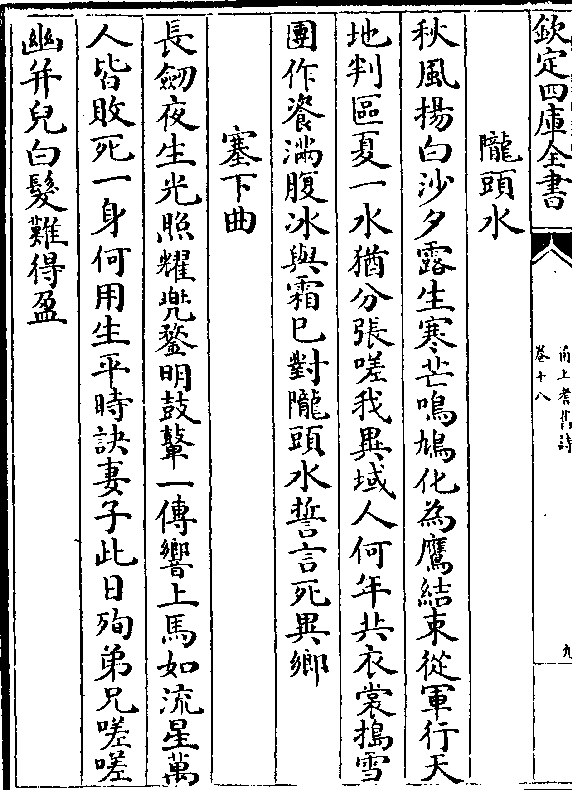 欽定四庫全書
甬上耆舊詩
卷十八
九
隴頭水
秋風揚白沙夕露生寒芒鳴鳩化為鷹結束從軍行天
地判區夏一水猶分張嗟我異域人何年共衣裳搗雪
團作餈滿腹冰與霜已對隴頭水誓言死異鄉
塞下曲
長劒夜生光照耀兠鍪明鼓鼙一傳響上馬如流星萬
人皆敗死一身何用生平時訣妻子此日殉弟兄嗟嗟
幽并兒白髮難得盈